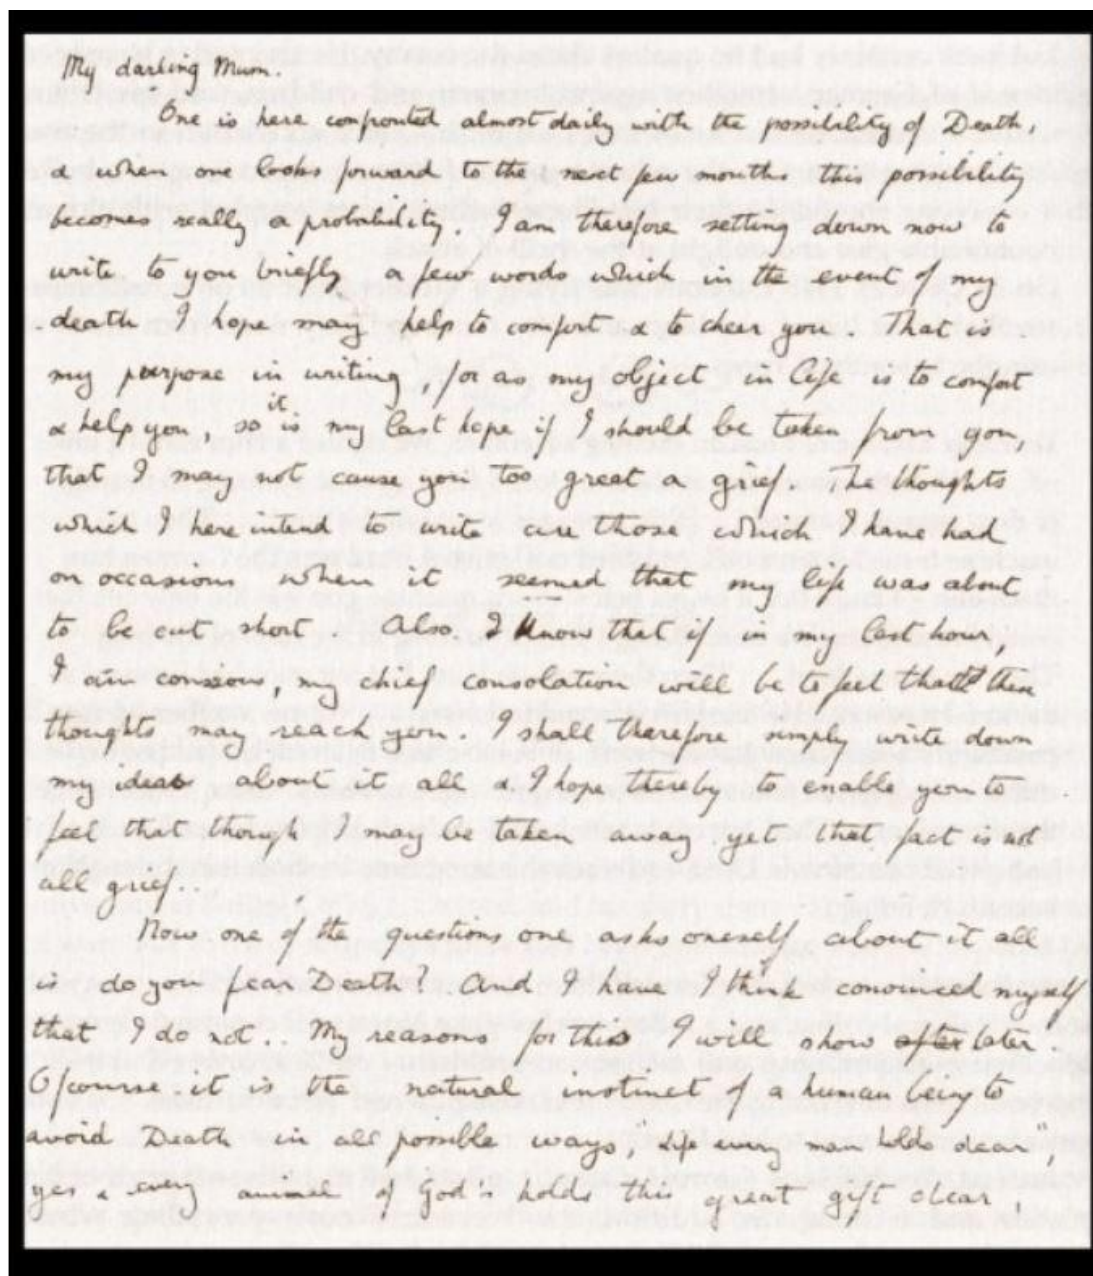 My darling Mum.
One is here confronted almost daily with the possibility of Death,
& when one looks forward to the next few months this possibility
becomes really a probability. I am therefore setting down now to
write to you briefly a few words which in the event of my
death I hope may help to comfort & to cheer you. That is
my purpose in writing, for as my object in life is to comfort
& help you, so it is my last hope if I should be taken from you
that I may not cause you too great a grief. The thoughts
which I here intend to write are those which I have had
on occasions when it seemed that my life was about
to be cut short. Also I know that if in my last hour,
I am conscious, my chief consolation will be to feel that these
thoughts may reach you. I shall therefore simply write down
my ideas about it all & I hope thereby to enable you to
feel that though I may be taken away yet that fact is not
all grief..
Now one of the questions one asks oneself about it all
is do you fear Death? And I have I think convinced myself
that I do not.. My reasons for this I will show later.
Of course it is the natural instinct of a human being to
avoid Death in all possible ways, "life every man holds dear"
yes & every animal of God's holds this great gift dear!